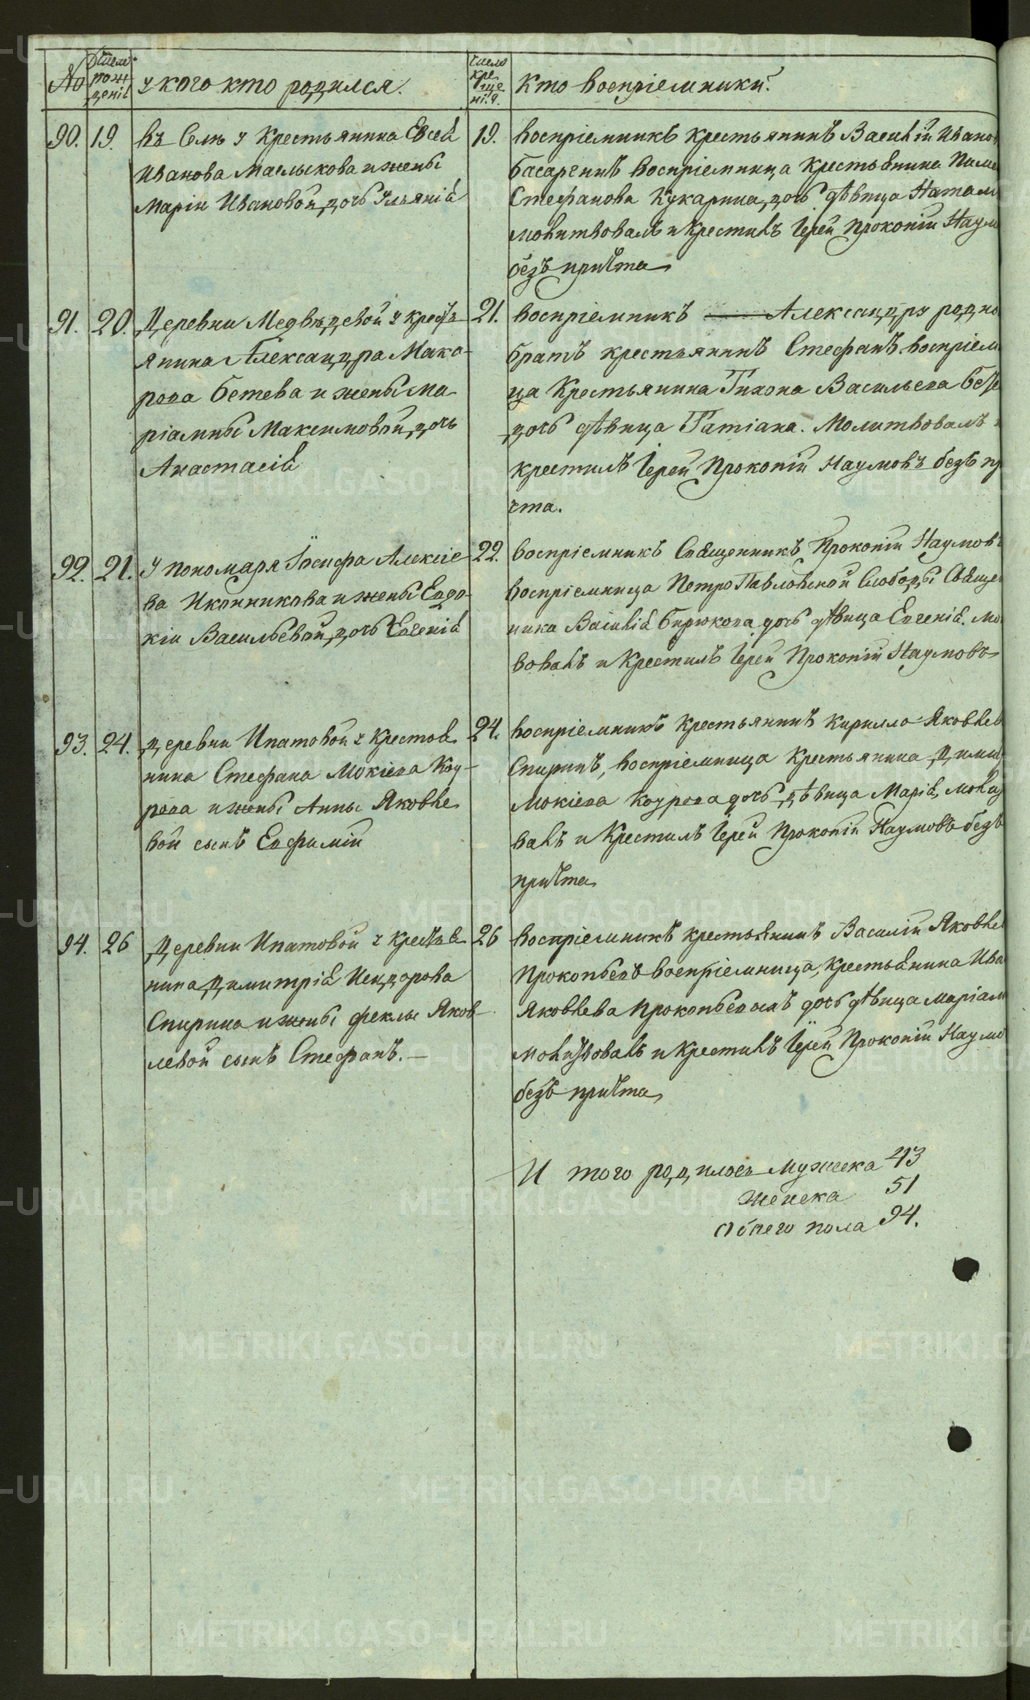 №
Число рожденiя
У кого кто родился.
Число крещенiя.
Кто воспрiемники.
90. 19.
въ Селѣ у Крестьянина Евсея
Иванова Маслыкова и жены
Марiи Ивановой, дочь Ульянiя
19.
воспрiемникъ крестьянинъ Василiй Ивано
басаргинъ воспрiемница Крестьянина
Стефанова Кукарина, дочь дѣвица Натал
молитвовалъ и Крестилъ Iерей Прокопiй Наум
безъ причта
91. 20.
Деревни Медвѣдевой у крестья
янина Александра Мака-
рова бетева и жены Ма
рiамны Максимовой, дочь
Анастасiя
21.
воспрiемникъ Александра родно
братъ крестьянинъ Стефанъ воспрiем
ца Крестьянина Тихона Васильева бе
дочь дѣвица Татiана. Молитвовалъ и
крестилъ Iерей Прокопiй Наумовъ безъ пр
чта.
92. 21.
У пономаря Iосифа Алексiе
ва Иконникова и жены Евдо-
кiи Васильевой, дочь Евгенiя
22.
воспрiемникъ Священникъ Прокопiй Наумовъ
воспрiемница Петро Павловской Слободы Свяще
ника Василiя бирюкова дочь дѣвица Евгенiя. мо
вовалъ и Крестилъ Iерей Прокопiй Наумовъ
93. 24.
Деревни Ипатовой у Крестья
нина Стефана Мокiева Коу-
рова и жены Анны Яковле
вой сынъ Евфимiй
24.
воспрiемникъ Крестьянинъ Кирилло Яковлев
Спиринъ, воспрiемница Крестьянина Дими
Мокiева Коурова дочь дѣвица Марiя, молит
валъ и Крестилъ Iерей Прокопiй Наумовъ безъ
причта
94. 26
Деревни Ипатовой у крестья
нина Димитрiя Исидорова
Спирина и жены феклы Яков-
левой сынъ Стефанъ. —
26
воспрiемникъ крестьянинъ Василiй Яковле
Прокопьевъ воспрiемница, Крестьянина Ива
Яковлева Прокопьева дочь дѣвица Марiам
молитвовалъ и Крестилъ Iерей Прокопiй Наумо
безъ причта
И того родилось Мужеска 43
женска 51
Обоего пола 94.
METRIKI.GASO-URAL.RU